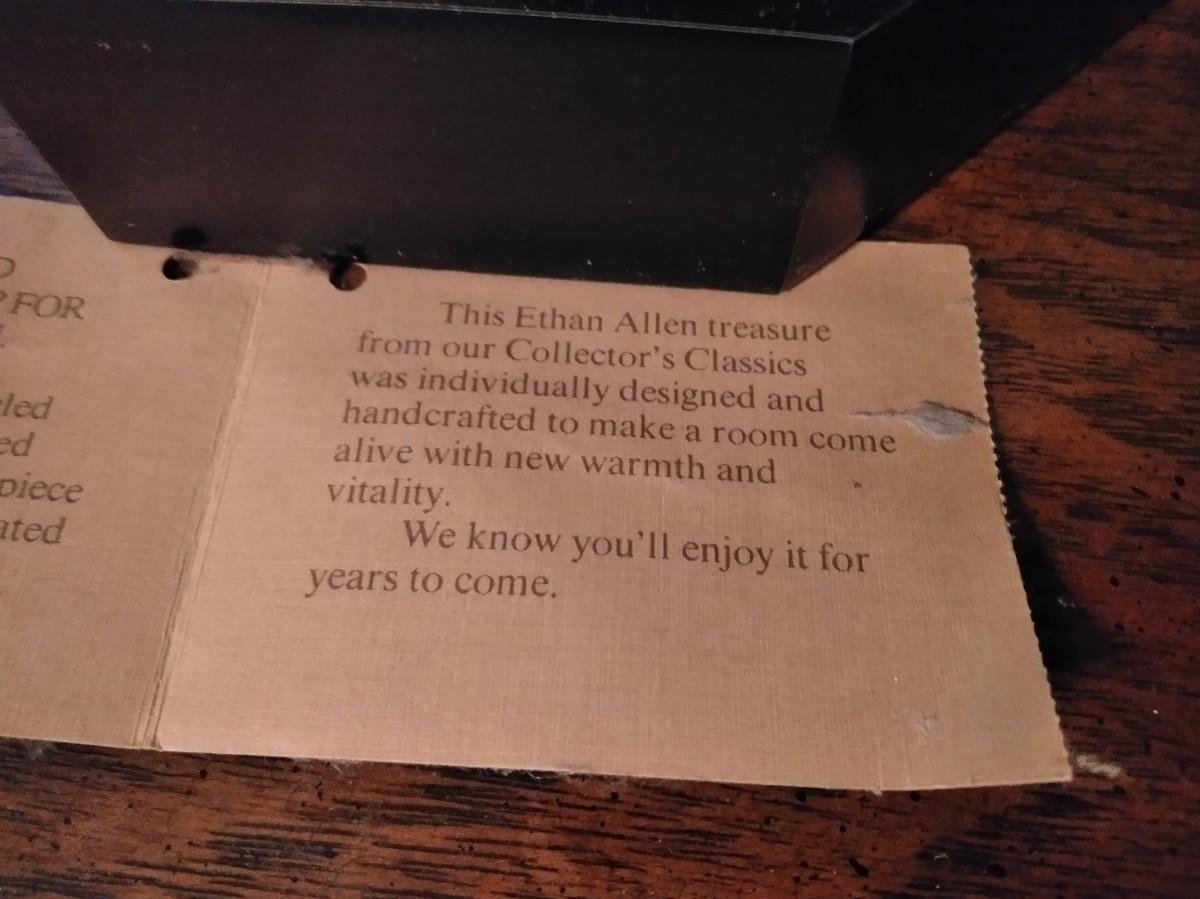 FOR
piece
This Ethan Allen treasure
from our Collector's Classics
was individually designed and
handcrafted to make a room come
alive with new warmth and
vitality.
We know you'll enjoy it for
years to come.